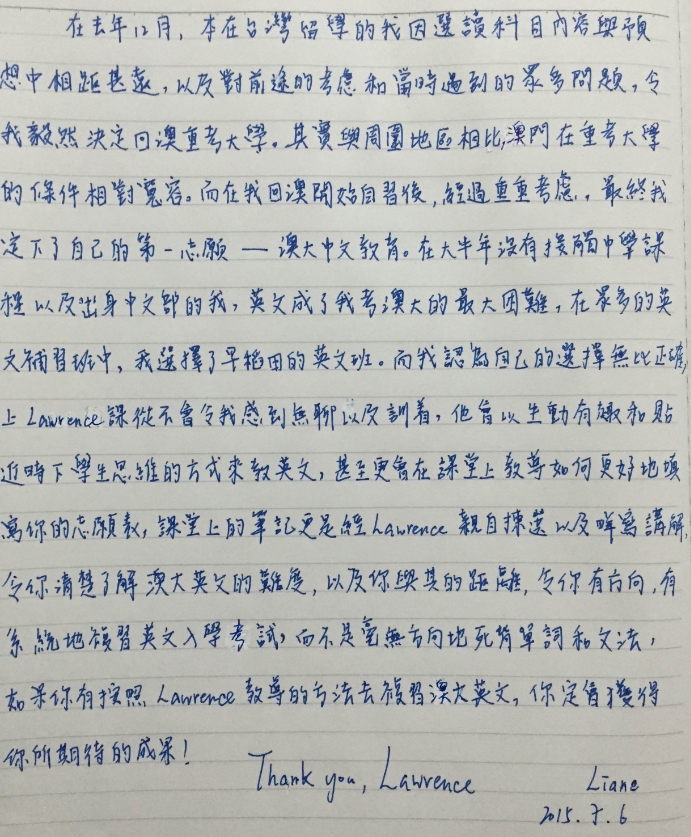 在去年12月，本在台灣留學的我因選讀科目內容與預
想中相距甚遠，以及對前途的考慮和當時遇到的眾多問題，令
我毅然決定回澳重考大學。其實與周圍地區相比，澳門在重考大學
的條件相對寬容。而在我回澳開始自習後，經過重重考慮，最終我
定下了自己的第一志願——澳大中文教育。在大半年沒有接觸中學課
程以及出身中文部的我，英文成了我考澳大的最大困難，在眾多的英
文補習班中，我選擇了早稻田的英文班。而我認為自己的選擇無比正確，
上Lawrence課從不會令我感到無聊以及訓着，他會以生動有趣和貼
近時下學生思維的方式來教英文，甚至更會在課堂上教導如何更好地填
寫你的志願表，課堂上的筆記更是經Lawrence親自揀選以及詳寫講解，
令你清楚了解澳大英文的難度，以及你與其的距離，令你有方向，有
系統地複習英文入學考試，而不是毫無方向地死背單詞和文法，
如果你有按照Lawrence教導的方法去複習澳大英文，你定會獲得
你所期待的成果！
Thank you, Lawrence
Liane
2015.7.6